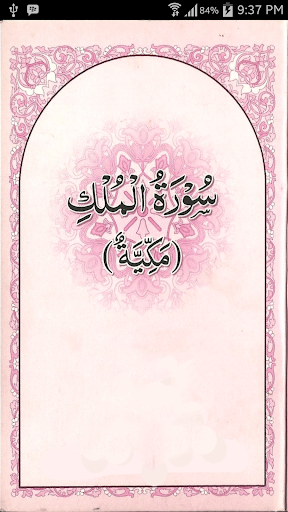 84% 9:37 PM
سُوْرَةُ الْمُلْكِ
(مَكِّيَّةٌ)